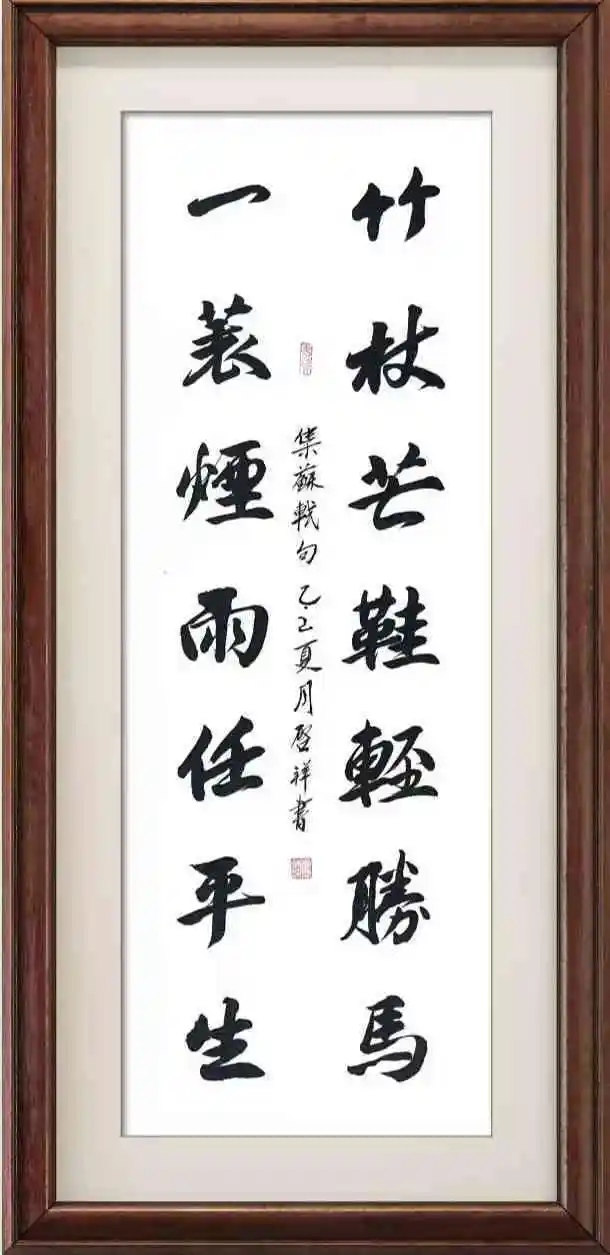 竹杖芒鞋輕勝馬
一蓑煙雨任平生
集蘇軾句 乙巳夏月啓祥書